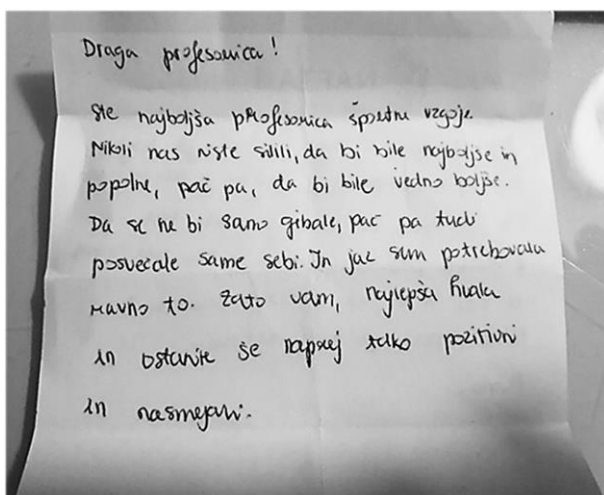 Draga profesorica!
ste najboljša profesorica športne vzgoje.
Nikoli nas niste silili, da bi bile najboljše in
popolne, pač pa, da bi bile vedno boljše.
Da se ne bi samo gibale, pač pa tudi
posvečale same sebi. In jaz sem potrebovala
ravno to. Zato vam, najlepša hvala
in ostanite še naprej tako pozitivni
in nasmejani.